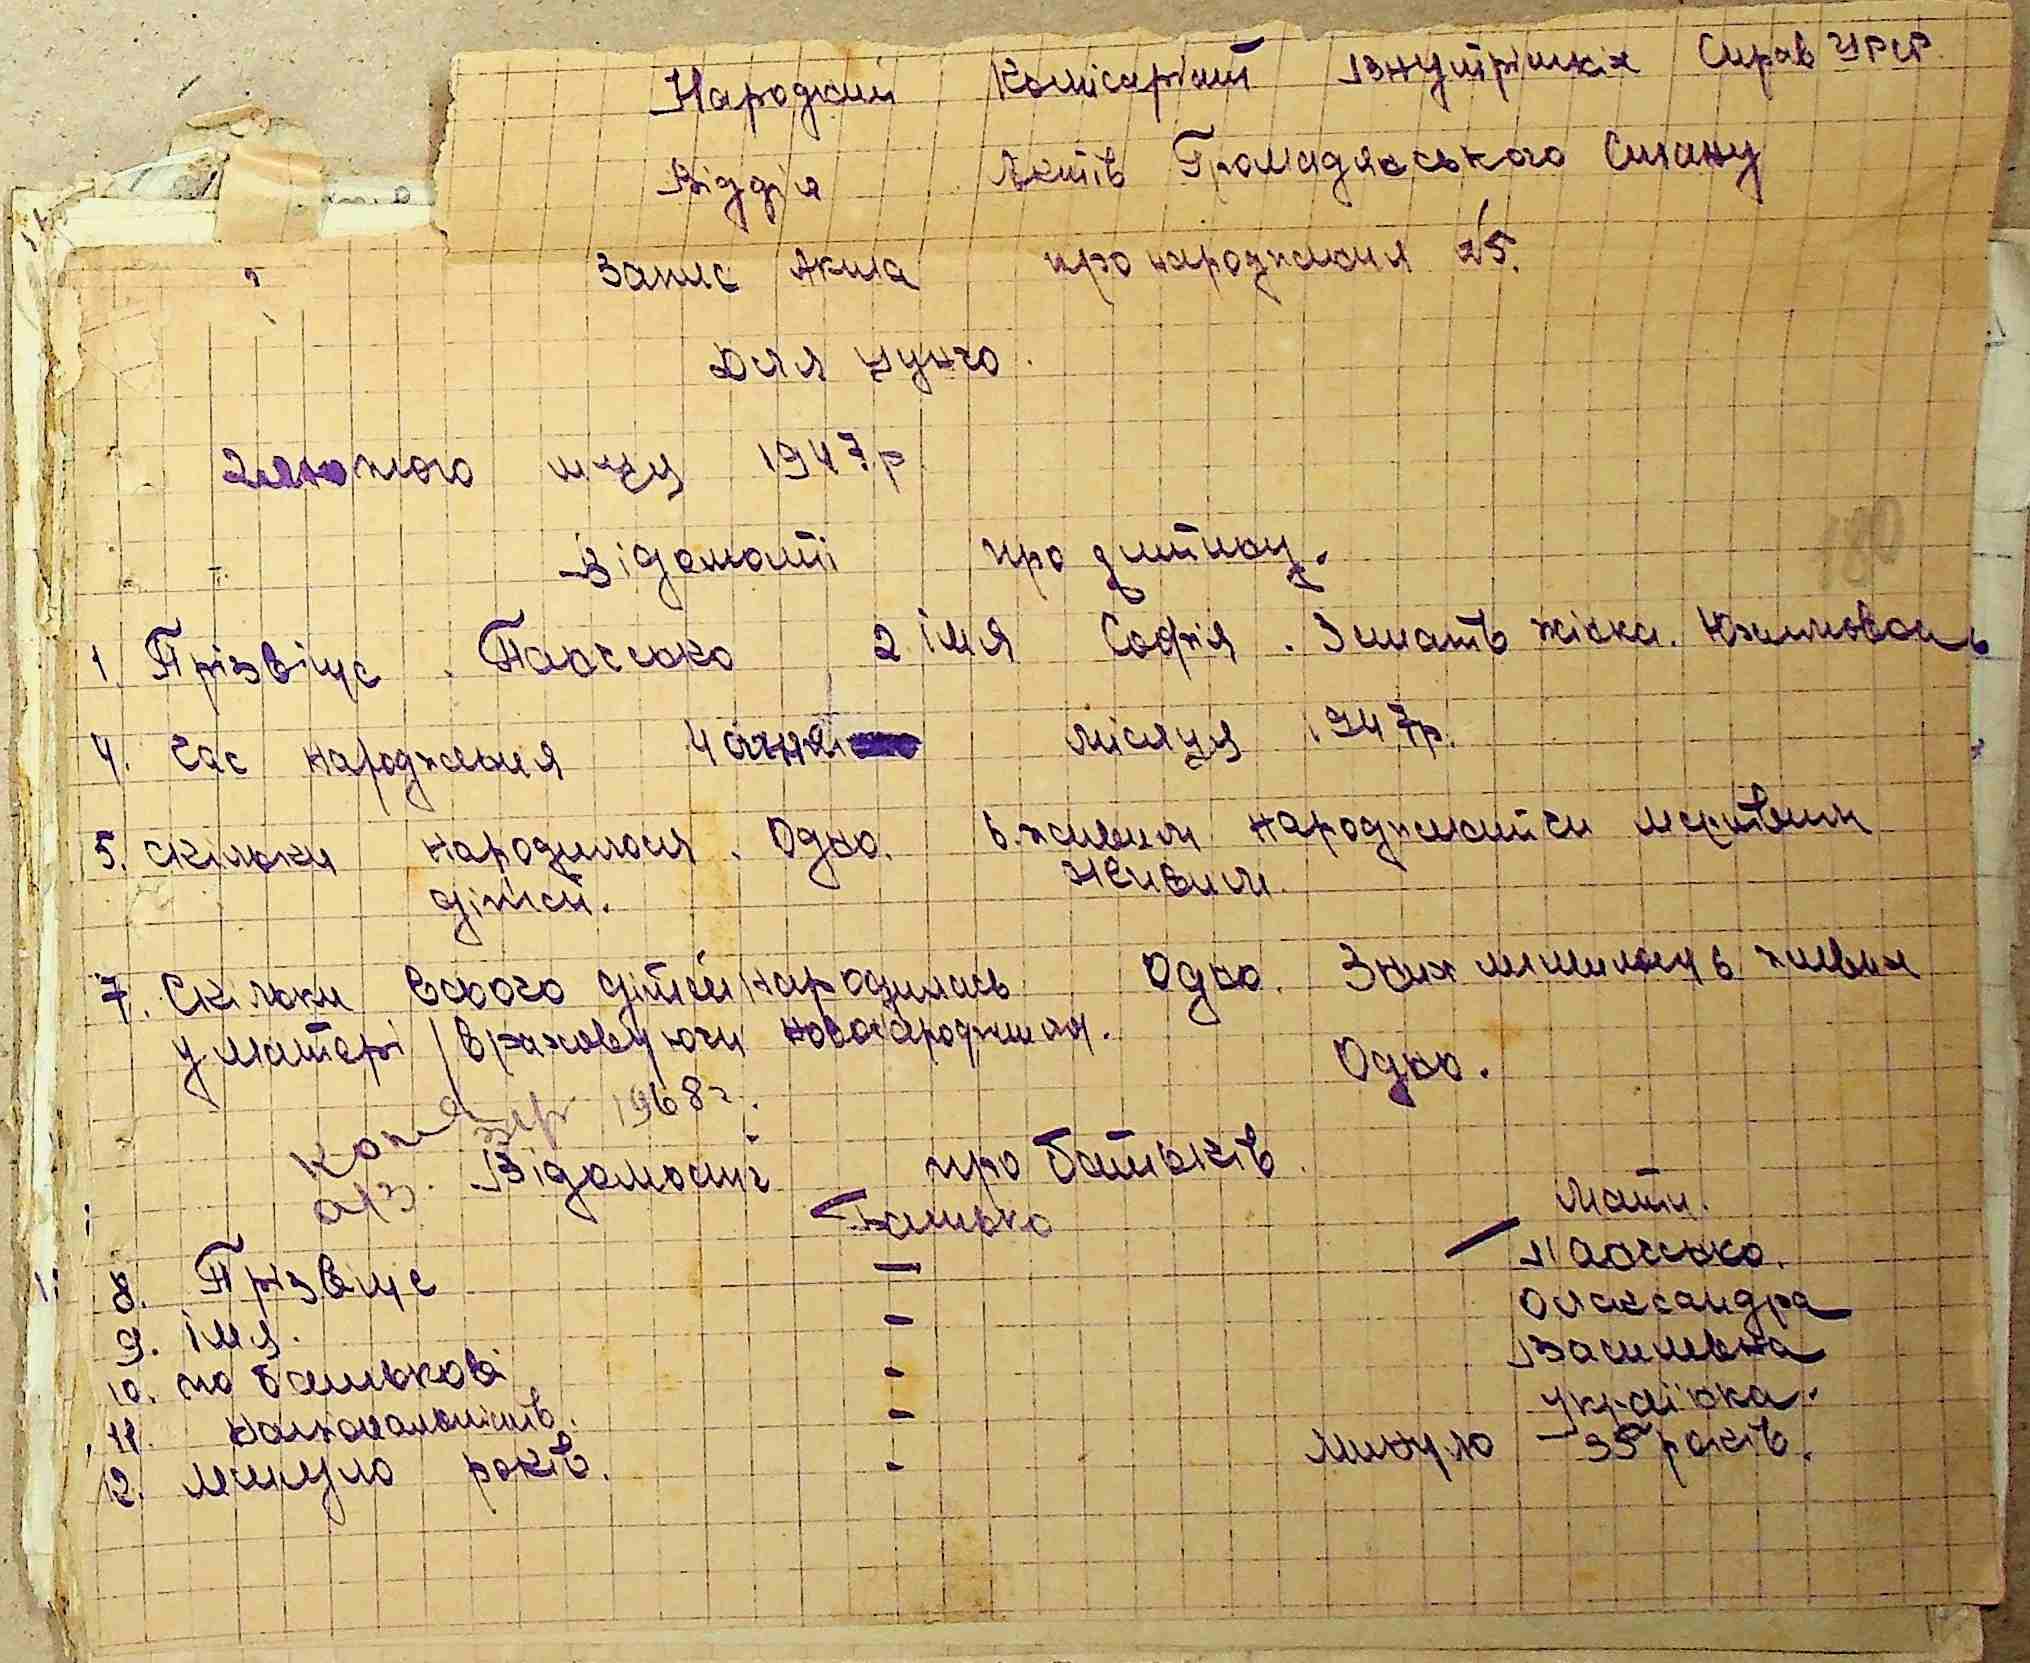 Народний Комісаріят Внутрішніх Справ УРСР.
Відділ Актів Громадянського Стану
Запис Акта про народження 25.
Для учнго.
2 лютого м-ця 1947 р
Відомості про дитину.
1. Прізвіще. 2 імя Софія. 3 стать жіпка.
4. Час народження 4 січня місяця 1947р.
5. скільки народилося. Одно. 6. живим народжений чи мертвим
дітей. живим.
7. Скільки всього дітей народилась Одно. З них лишилось в живих
у матері /враховуючи новонароджених. Одно.
1968 г.
Відомості про батьків.
Батько Мати.
8. Прізвіще —
9. імя. - Олександра
10. по батькові - Василівна
11. національність. - українка.
12. минуло років. - минуло — 35 років.
180